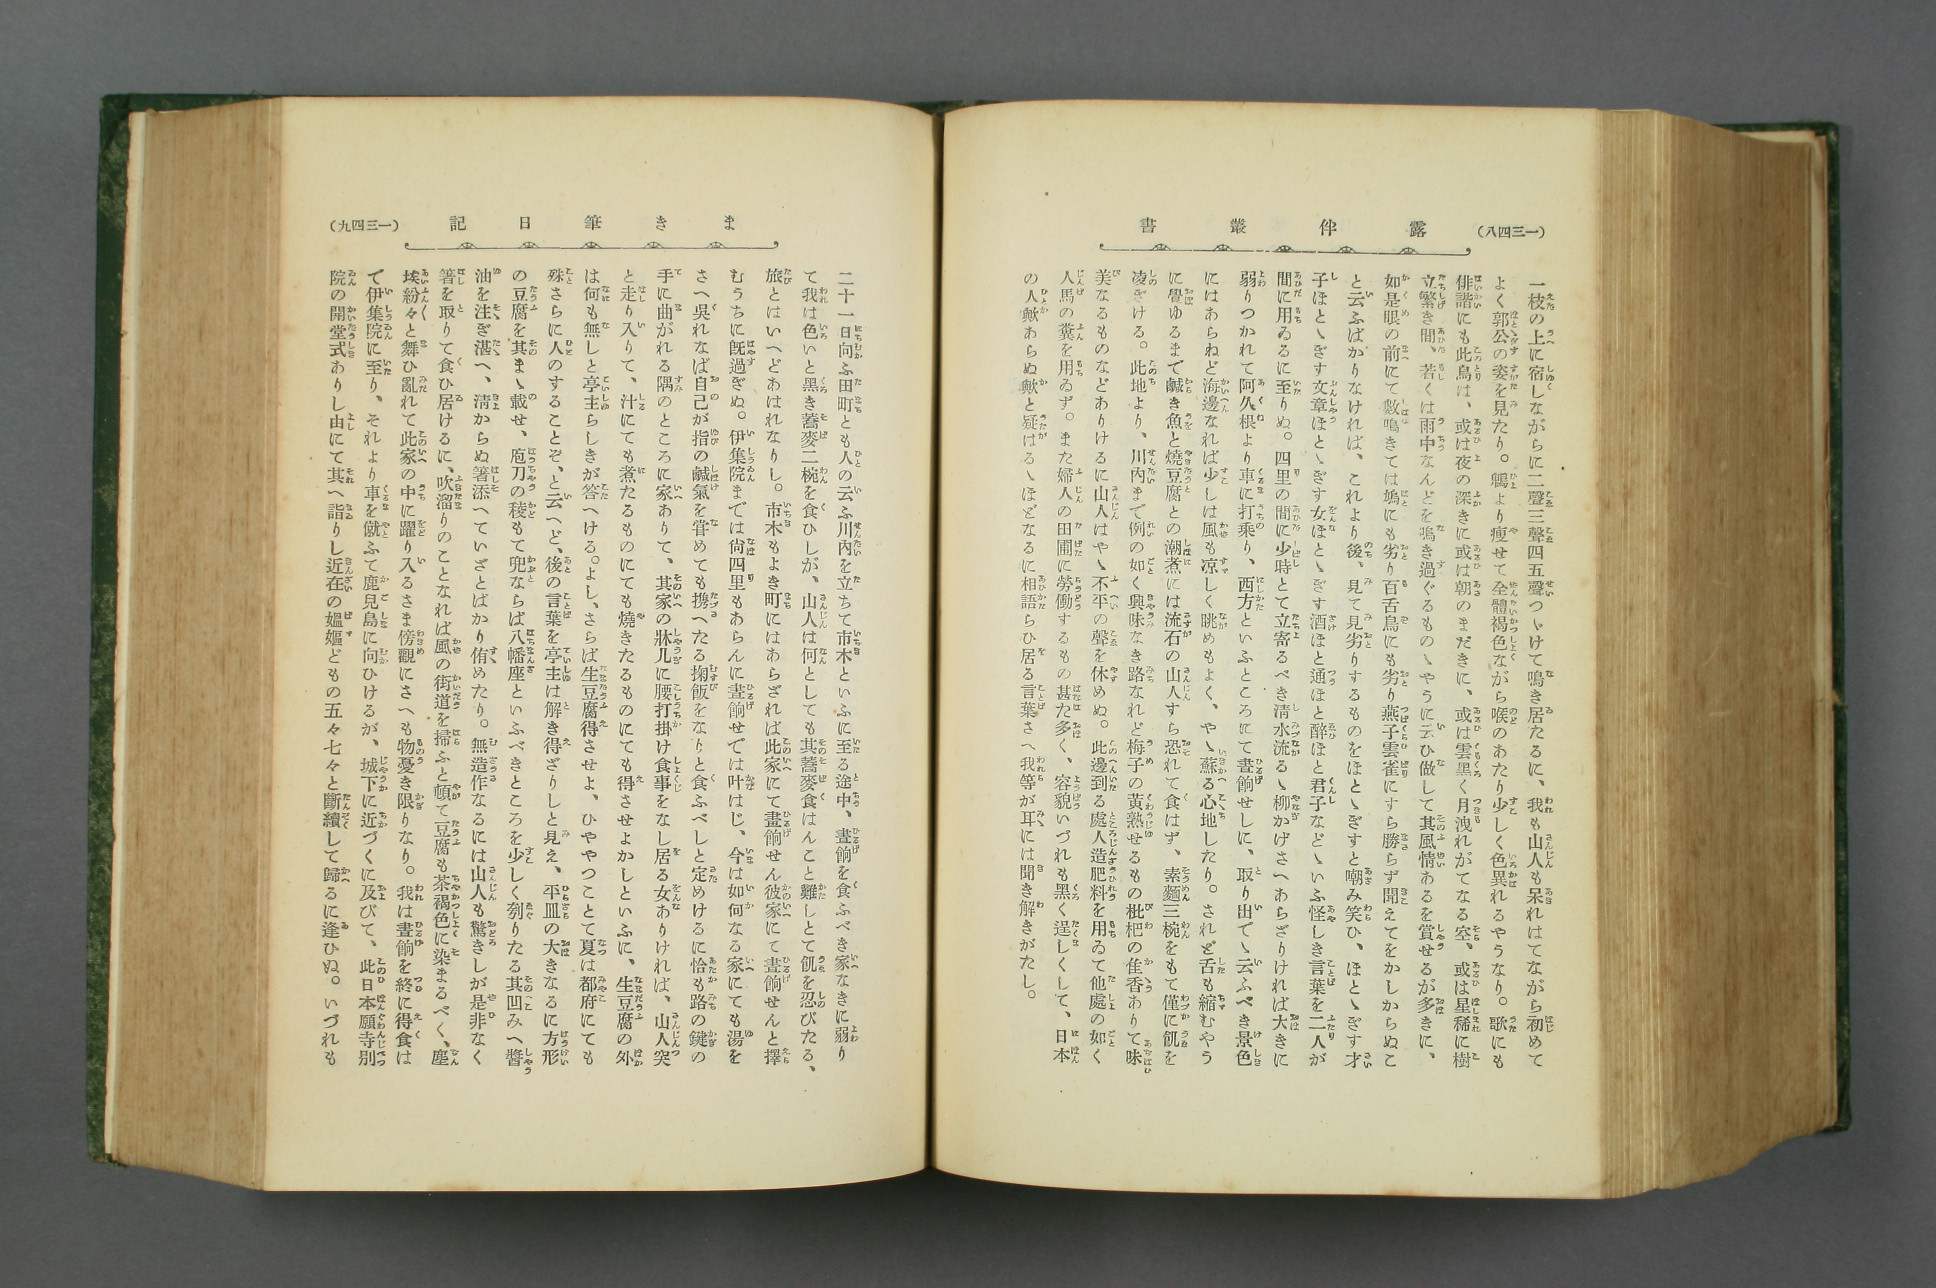 (一三四八)
露伴叢書
一枝の上に宿しながらに二聲三聲四五聲つゞけて鳴き居たるに、我も山人も呆れはてながら初めて
よく郭公の姿を見たり。鵯より痩せて全體褐色ながら喉のあたり少しく色異れるやうなり。歌にも
俳諧にも此鳥は、或は夜の深きに或は朝のまだきに、或は雲黑く月洩れがてなる空、或は星稀に樹
立繁き間、若くは雨中なんどを鳴き過ぐるものゝやうに云ひ做して其風情あるを賞せるが多きに、
如是眼の前にて數鳴きては鳩にも劣り百舌鳥にも劣り燕子雲雀にすら勝らず聞えてをかしからぬこ
と云ふばかりなければ、これより後、見て見劣りするものをほとゝぎすと嘲み笑ひ、ほとゝぎす才
子ほとゝぎす文章ほとゝぎす女ほとゝぎす酒ほと通ほと醉ほと君子などゝいふ怪しき言葉を二人が
間に用ゐるに至りぬ。四里の間に少時とて立寄るべき淸水流るゝ柳かげさへあらざりければ大きに
弱りつかれて阿久根より車に打乘り、西方といふところにて晝餉せしに、取り出でゝ云ふべき景色
にはあらねど海邊なれば少しは風も凉しく眺めもよく、やゝ蘇る心地したり。されど舌も縮むやう
に覺ゆるまで鹹き魚と燒豆腐との潮煮には流石の山人すら恐れて食はず、素麵三椀をもて僅に飢を
凌ぎける。此地より、川內まで例の如く興味なき路なれど梅子の黃熟せるもの枇杷の佳香ありて味
美なるものなどありけるに山人はやゝ不平の聲を休めぬ。此邊到る處人造肥料を用ゐて他處の如く
人馬の糞を用ゐず。また婦人の田圃に勞働するもの甚だ多く、容貌いづれも黑く逞しくして、日本
の人歟あらぬ歟と疑はるゝほどなるに相語らひ居る言葉さへ我等が耳には聞き解きがたし。
まき筆日記
(一三四九)
二十一日向ふ田町とも人の云ふ川內を立ちて市木といふに至る途中、晝餉を食ふべき家なきに弱り
て我は色いと黑き蕎麥二椀を食ひしが、山人は何としても其蕎麥食はんこと難しとて飢を忍びたる、
旅とはいへどあはれなりし。市木もよき町にはあらざれば此家にて晝餉せん彼家にて晝餉せんと擇
むうちに旣過ぎぬ。伊集院までは尙四里もあらんに晝餉せでは叶はじ、今は如何なる家にても湯を
さへ吳れなば自己が指の鹹氣を甞めても携へたる掬飯をなりと食ふべしと定めけるに恰も路の鍵の
手に曲がれる隅のところに家ありて、其家の牀几に腰打掛け食事をなし居る女ありければ、山人突
と走り入りて、汁にても煮たるものにても燒きたるものにても得させよかしといふに、生豆腐の外
は何も無しと亭主らしきが答へける。よし、さらば生豆腐得させよ、ひややつことて夏は都府にても
殊さらに人のすることぞ、と云へど、後の言葉を亭主は解き得ざりしと見え、平皿の大きなるに方形
の豆腐を其まゝ載せ、庖刀の稜もて兜ならば八幡座といふべきところを少しく刳りたる其凹みへ醬
油を注ぎ湛へ、淸からぬ箸添へていざとばかり侑めたり。無造作なるには山人も驚きしが是非なく
箸を取りて食ひ居けるに、吹溜りのことなれば風の街道を掃ふと頓て豆腐も茶褐色に染まるべく、塵
埃紛々と舞ひ亂れて此家の中に躍り入るさま傍觀にさへも物憂き限りなり。我は晝餉を終に得食は
で伊集院に至り、それより車を僦ふて鹿兒島に向ひけるが、城下に近づくに及びて、此日本願寺別
院の開堂式ありし由にて其へ詣りし近在の媼嫗どもの五々七々と斷續して歸るに逢ひぬ。いづれも